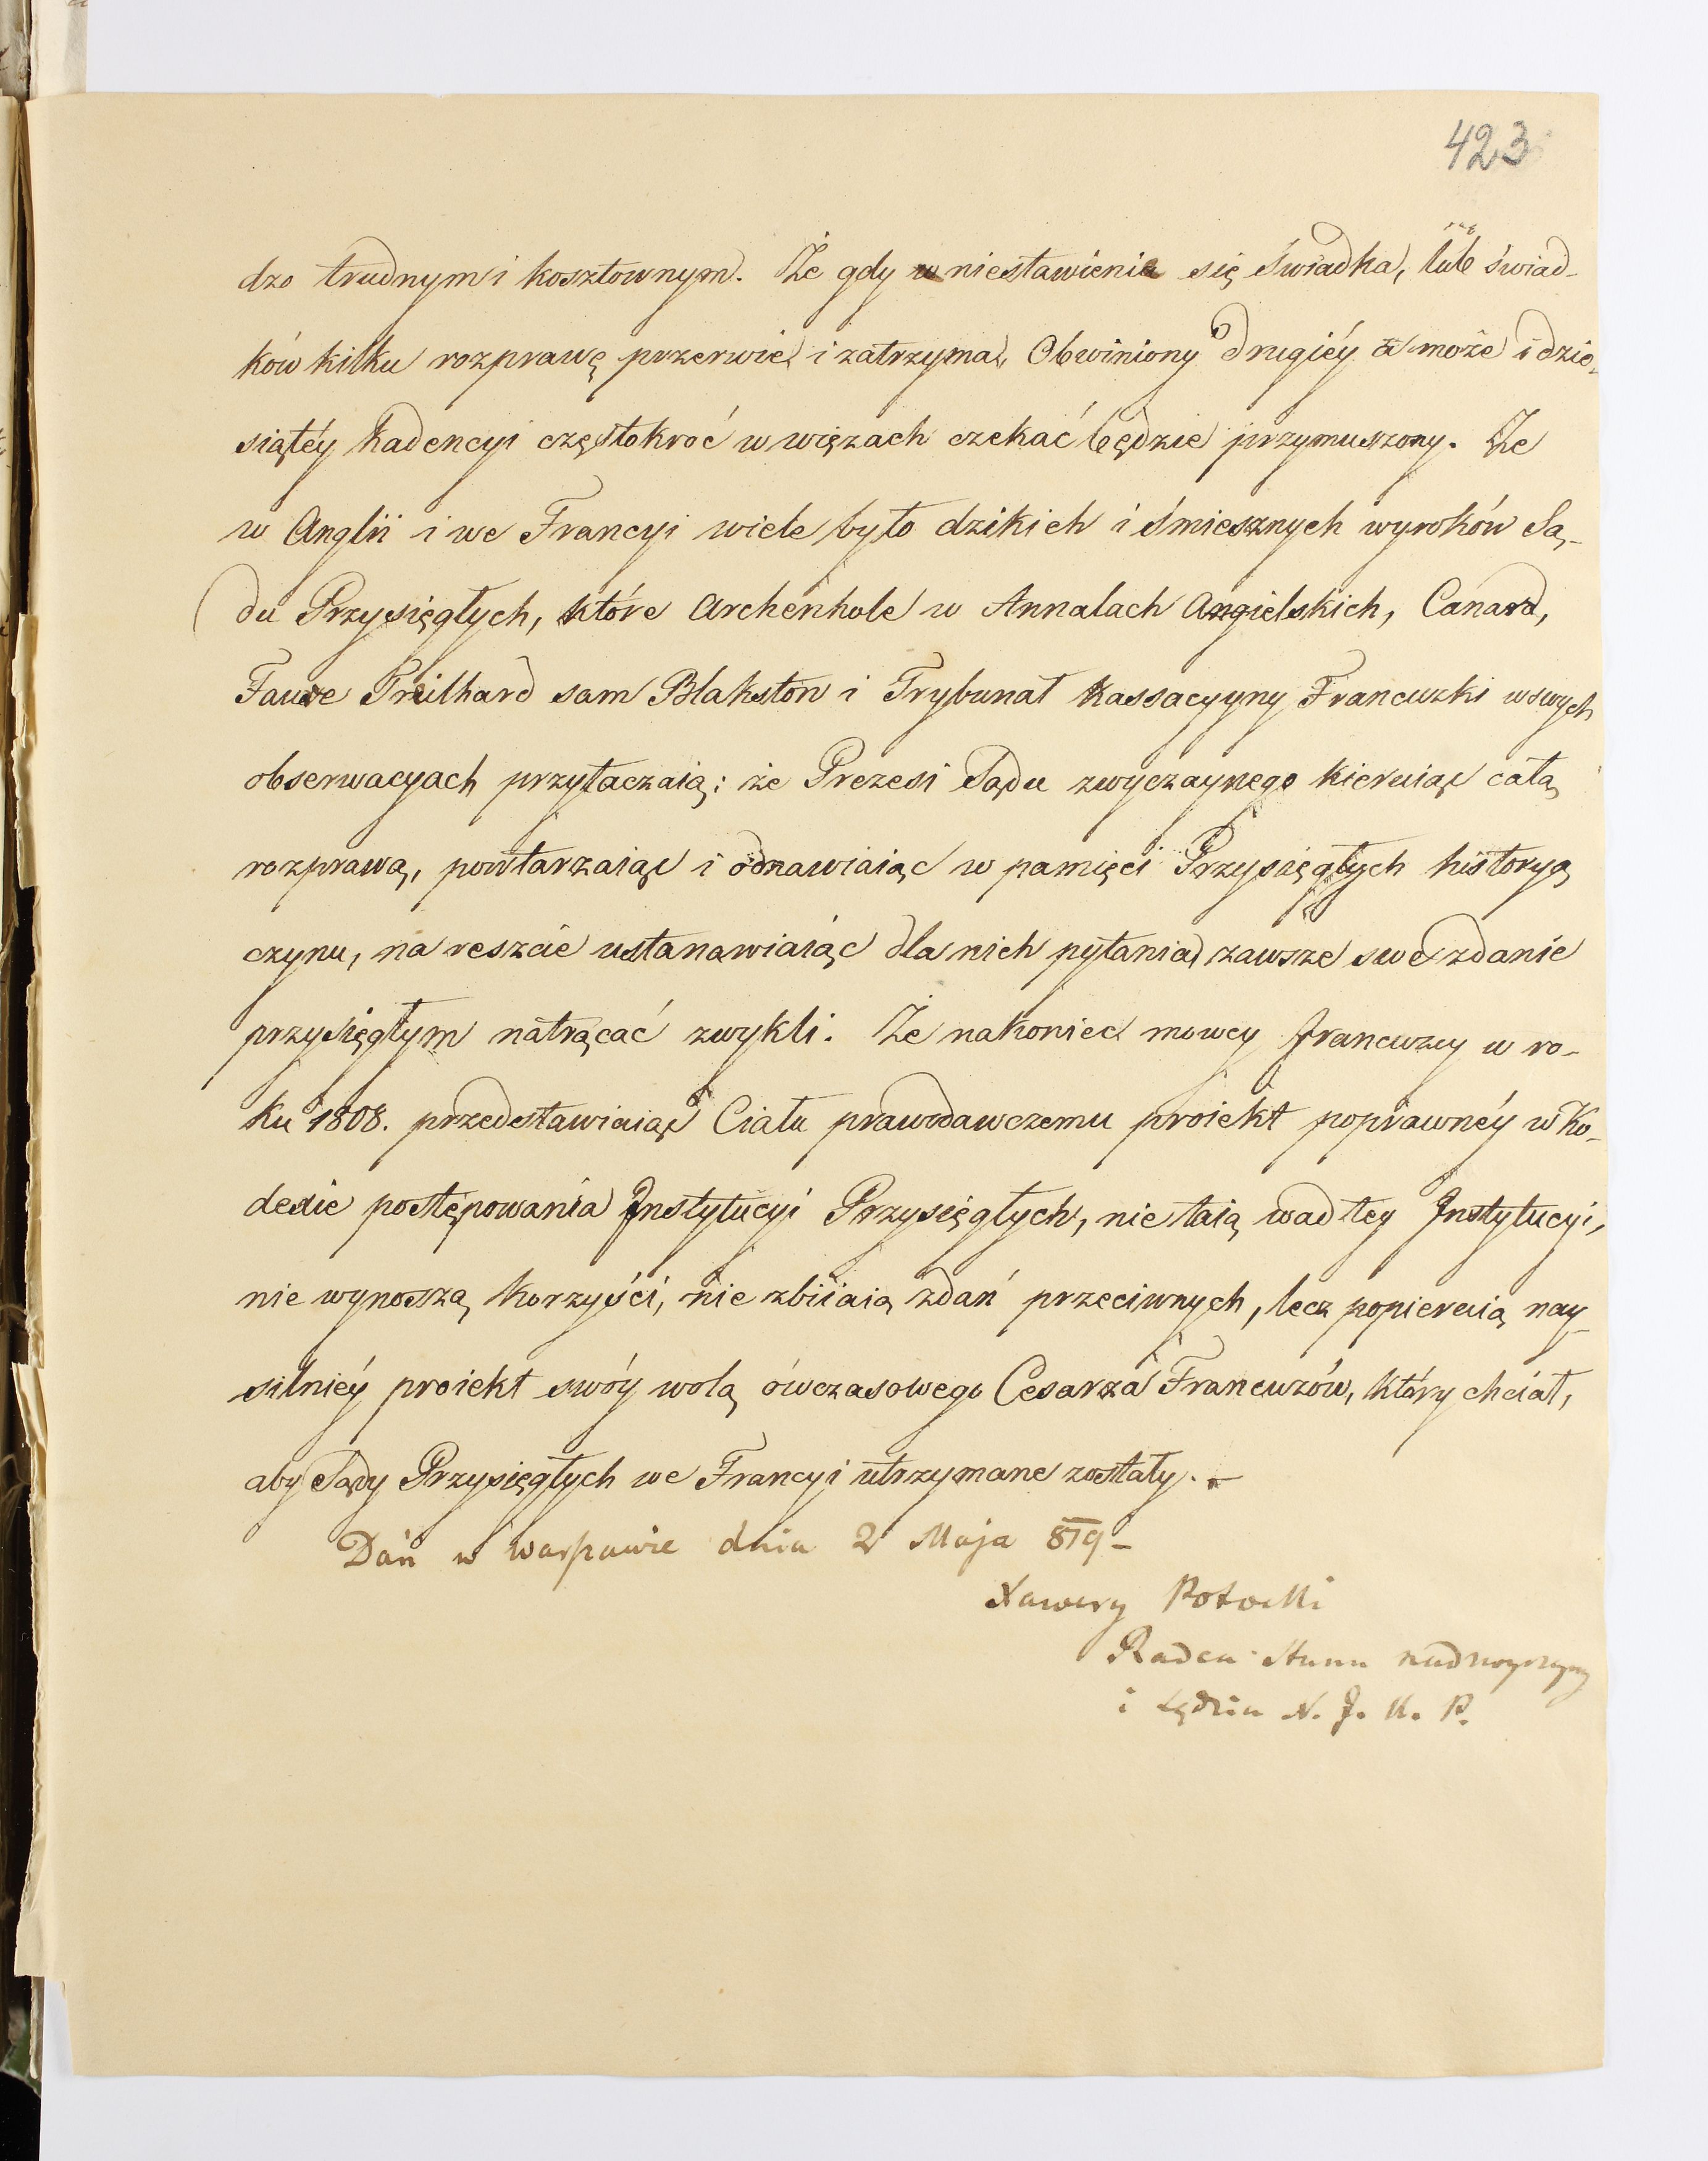 423
dzo trudnym i kosztownym. Że gdy niestawienie się świadka, lub świad-
ków kilku rozprawę przerwie i zatrzyma, Obwiniony drugiéy a może i dzie-
siątéy kadencyi częstokroć w więzach czekać będzie przymuszony. Że
w Anglii i we Francyi wiele było dzikich i śmiesznych wyroków Są-
du Przysięgłych, które Archenhole w Annalach Angielskich, Canard,
Faure Treilhard sam Blakston i Trybunał Kassacyyny Francuzki w swych
obserwacyach przytaczaią; że Prezesi Sądu zwyczaynego kieruiąc całą
rozprawą, powtarzaiąc i odnawiaiąc w pamięci Przysięgłych historyą
czynu, na reszcie ustanawiaiąc dla nich pytania, zawsze swe zdanie
przysięgłym natrącać zwykli. Że nakoniec mowcy francuzcy w ro-
ku 1808. przedstawiaiąc Ciału prawodawczemu proiekt poprawnéy w Ko-
dexie postępowania Instytucyi Przysięgłych, nie taią wad tey Instytucyi,
nie wynoszą korzyści, nie zbiiaią zdań przeciwnych, lecz popieraią nay-
silniéy proiekt swóy wolą ówczasowego Cesarza Francuzów, który chciał,
aby Sądy Przysięgłych we Francyi utrzymane zostały. –
Dań w Warszawie dnia 2 Maja 819 –
Xawery Potocki
Radca Stanu nadzwyczayny
i Sędzia N. J. K. P.